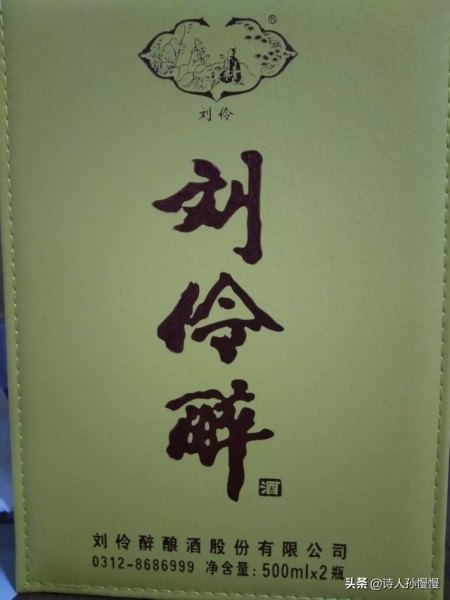 ®
刘伶
刘
伶
醉
酒
刘伶醉酿酒股份有限公司
0312-8686999 净含量: 500ml×2瓶
头条 @诗人孙慢慢